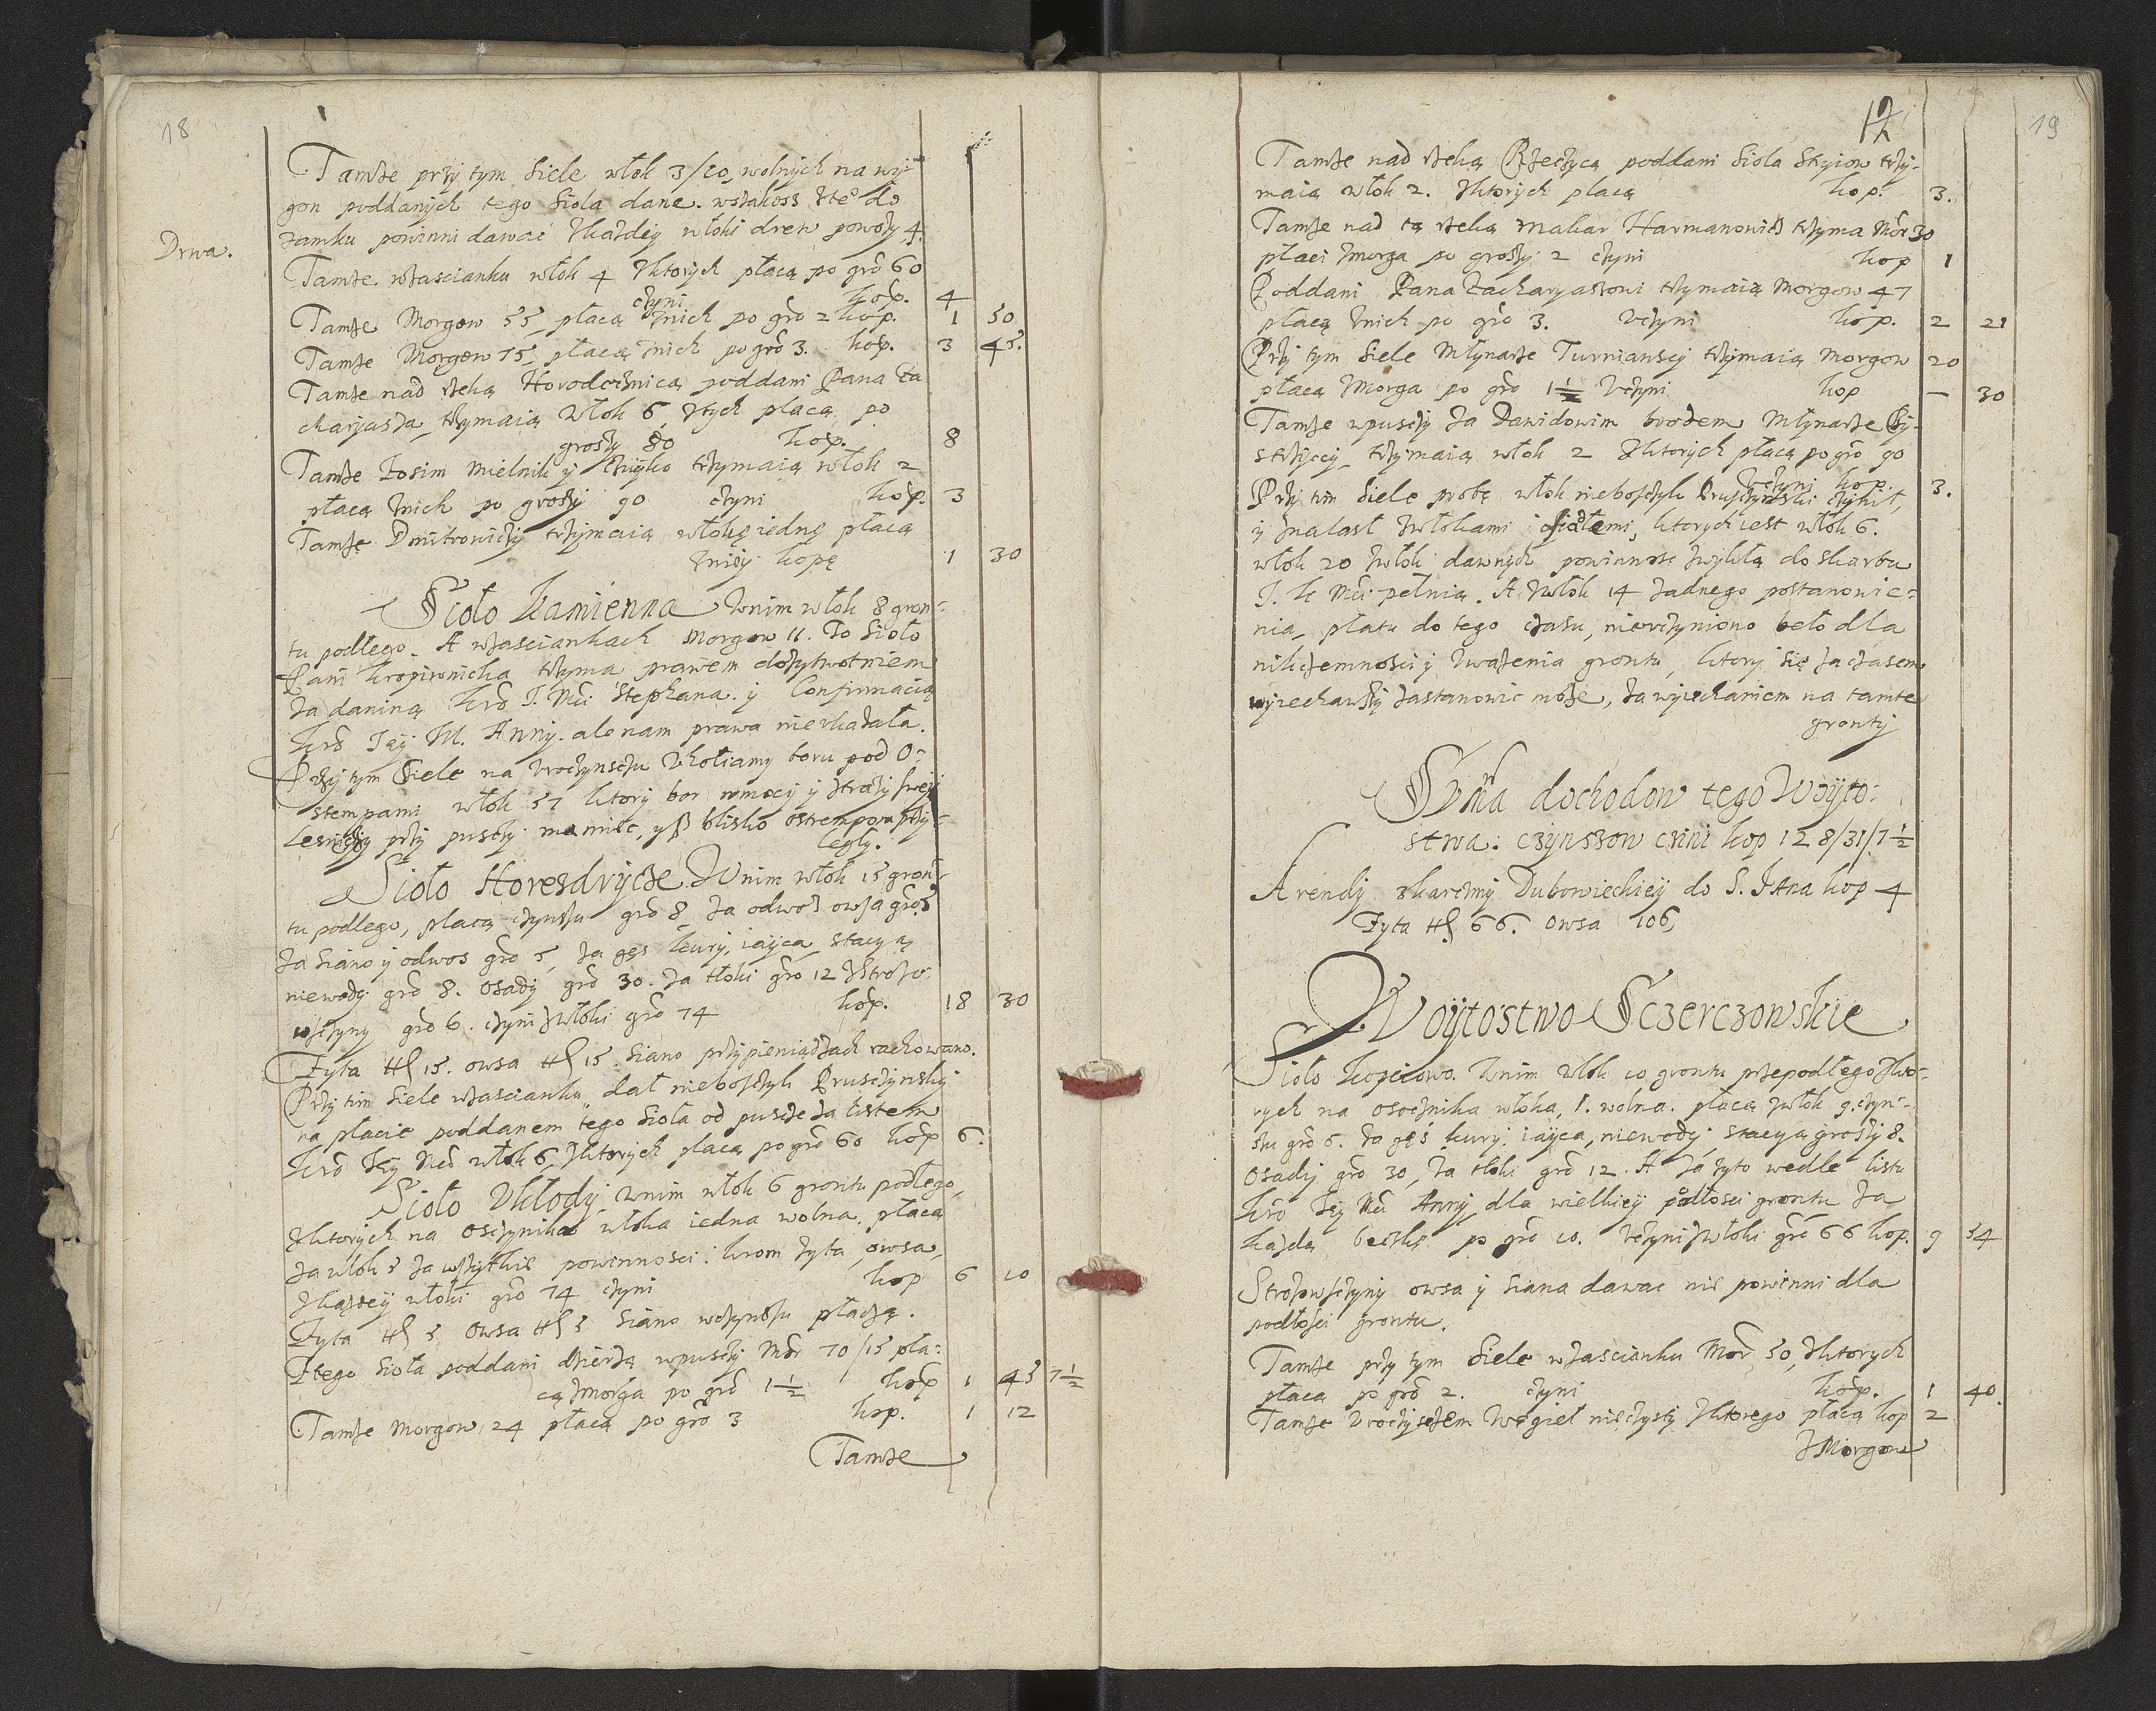 18
Drwa.
Tamże przy tym siele włok 3/10, wolnych na wy-
gon poddanych tego siola dane. wszakoss zte° do
zamku powinni dawać zkażdey włoki drew powozy 4.
Tamże. wzascianku włok 4 zktorych płacą po grō 60
czyni kop. 4
Tamże Morgow 55, płacą znich po grō 2 kop. 1 50
Tamże Morgow 75, płacą znich po grō 3. kop. 3 45.
Tamże nad rzeką Horodcznicą poddani Pana Za
charyasza, trzymaią Włok 6, ztych płacą po
groszy 80 kop. 8
Tamże Iosim Mielnik y trzymaią włok 2
płacą znich po groszy 90 czyni kop. 3
Tamże Dmitrowiczy trzymaią włokę iednę płacą
zniey kopę 1 30
Sioło Kamienna Wnim włok 8 gron-
tu podłego. A wzasciankach Morgow 11. To Sioło
Pani Kropiwnicka trzyma prawem dożywotniem
za daniną Krō I. Mći Stephana. y Confirmacią
Krō Iey M. Anny. ale nam prawa nieukazała.
Przy tym Siele na Vroczysczu Vkoliamy boru pod O-
stempami włok 57 ktory bor wmocy y strazy swey
Lesniczy przy pusczy ma mieć, yß blisko ostempow przy-
legły.
Sioło Horesdrycze Wnim włok 15 gron-
tu podlego, płacą czynszu grō 8 za odwoz owsa grō 5
za siano y odwos grō 5, za gęs kury, iayca, stacyą
niewody grō 8. Osady grō 30. za tłoki grō 12 Strożo
wsczyny grō 6. czyni zwłoki grō 74 kop. 18 30
Zyta 15. owsa 15. siano przy pieniądzach rachowano.
Przy tim Siele wzascianku dał nieboszczyk Prusczynsky
na płacie poddanem tego Sioła od puscze za listem
Krō Iey Mći włok 6, zktorych płacą po grō 60 kop 6.
Sioło Vkłody, Wnim włok 6 grontu podłego,
zktorych na Osczynika włoka iedna wolna, płacą
za włok 5 za wszytkie powinnosci krom zyta, owsa,
zkażdey włoki grō 74 czyni kop 6 10
Zyta 5 Owsa 5 Siano wczynszu płaczą.
Ztego Sioła poddani dzierżą wpusczy Mor 70/15 pła-
cą zmorga po grō 1½ kop 1 45 7½
Tamże Morgow 24 płacą po grō 3 kop. 1 12
Tamże
12
19
Tamże nad rzeką Rzeczycą poddani siola Skyiow trzy-
maią włok 2. zktorych płacą kop. 3.
Tamże nad tą rzeką Makar Harmanowicz trzyma Mor 30
płaci zmorga po groszy 2 czyni kop 1
Poddani Pana Zacharyaszowi trzymaią Morgow 47
płacą znich po grō 3. Vczyni kop. 2 21
Przy tym Siele Młynarze Turnianscy trzymaią Morgow 20
płacą zmorga po grō 1½ Vczyni kop — 30
Tamże wpusczy za Dawidowim brodem Młynarze By-
strzyccy trzymaią włok 2 zktorych płacą po grō 90
Vczyni kop. 3.
Przy tim Siele probę włok nieboszczyk Prusczynski czynił,
y znalasł zwłokami osiadłemi, ktorych iest włok 6.
włok 20 zwłok dawnych powinnosc zwykłą do skarbu
I. K Mći pełnią. A zwłok 14 żadnego postanowie-
nia, płatu do tego czasu, nieuczyniono beło dla
nikczemnosci y zważenia grontu, ktory się za czasem
wyiechawszy zastanowić może, za wyiechaniem na tamte
gronty
Sum̄a dochodow tego Woyto-
stwa: czynszow czini kop 128/31/7½
Arendy zkarczmy Dubowieckiey do S. Jana kop 4
Zyta 66. Owsa 106
Woytostwo Sczerczowskie
Sioło Kopciowo. Wnim włok 10 grontu przepodłego zkto-
rych na osocznika włoka, 1. wolna. płacą zwłok 9. czyn-
szu grō 6. za gęś kury, iayca, niewody, stacyą groszy 8.
Osady grō 30, za tłoki grō 12. A za żyto wedle listu
Krō Iey Mći Anny, dla wielkiey podłosci grontu za
każdą beczkę po grō 10. Vczyni zwłoki grō 66 kop. 9 54
Strożowsczyny owsa y siana dawac nie powinni dla
podłosci grontu.
Tamże przy tym Siele wzascianku Mor 50, zktorych
płacą po grō 2. czyni kop. 1 40.
Tamże Vroczysczem Węgieł nieczysty zktorego płacą kop 2
zMorgow